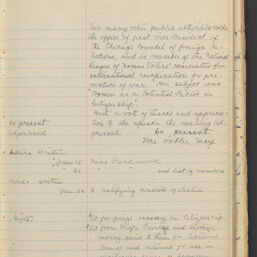 her many other public activities holds
the office of first vice President of
the Chicago Council of foreign Re-
lations, and is member of the National
League of Women Voters' committee for
international cooperation for pre-
vention of war. Her subject was
"Women as a Potential Factor in
Citizenship".
With a vote of thanks and apprecia-
tion to the speaker the meeting ad-
journed. 60 present.
60 present
Adjourned
Letters Written
Jan 15 Miss
" 22 and list of members
Cards written
Jan 22 to notifying of election
Gifts
$5 for prize essay on Citizenship.
$25 from Mrs.
money paid to him for lectures
and returned for use in